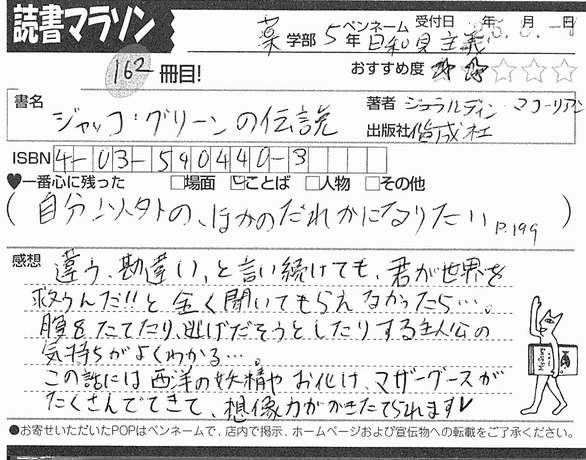 読書マラソン
薬学部5年 ペンネーム 日和見主義 受付日 年 月 日
162冊目!
おすすめ度 ☆☆☆☆☆
書名 ジャッコ・グリーンの伝説
著者 ジェラルディン マコーリアン
出版社 偕成社
ISBN 4-03-540440-3
♥一番心に残った □場面 □ことば □人物 □その他
(自分以外の、ほかのだれかになりたい P.199)
感想 違う、勘違い、と言い続けても、君が世界を
救うんだ!!と全く聞いてもらえなかったら…。
腹をたてたり、逃げだそうとしたりする主人公の
気持ちがよくわかる…。
この話には西洋の妖精やお化け、マザーグースが
たくさんでてきて、想像力がかきたてられます
●お寄せいただいたPOPはペンネームで、店内で掲示、ホームページおよび宣伝物への転載をご了承ください。